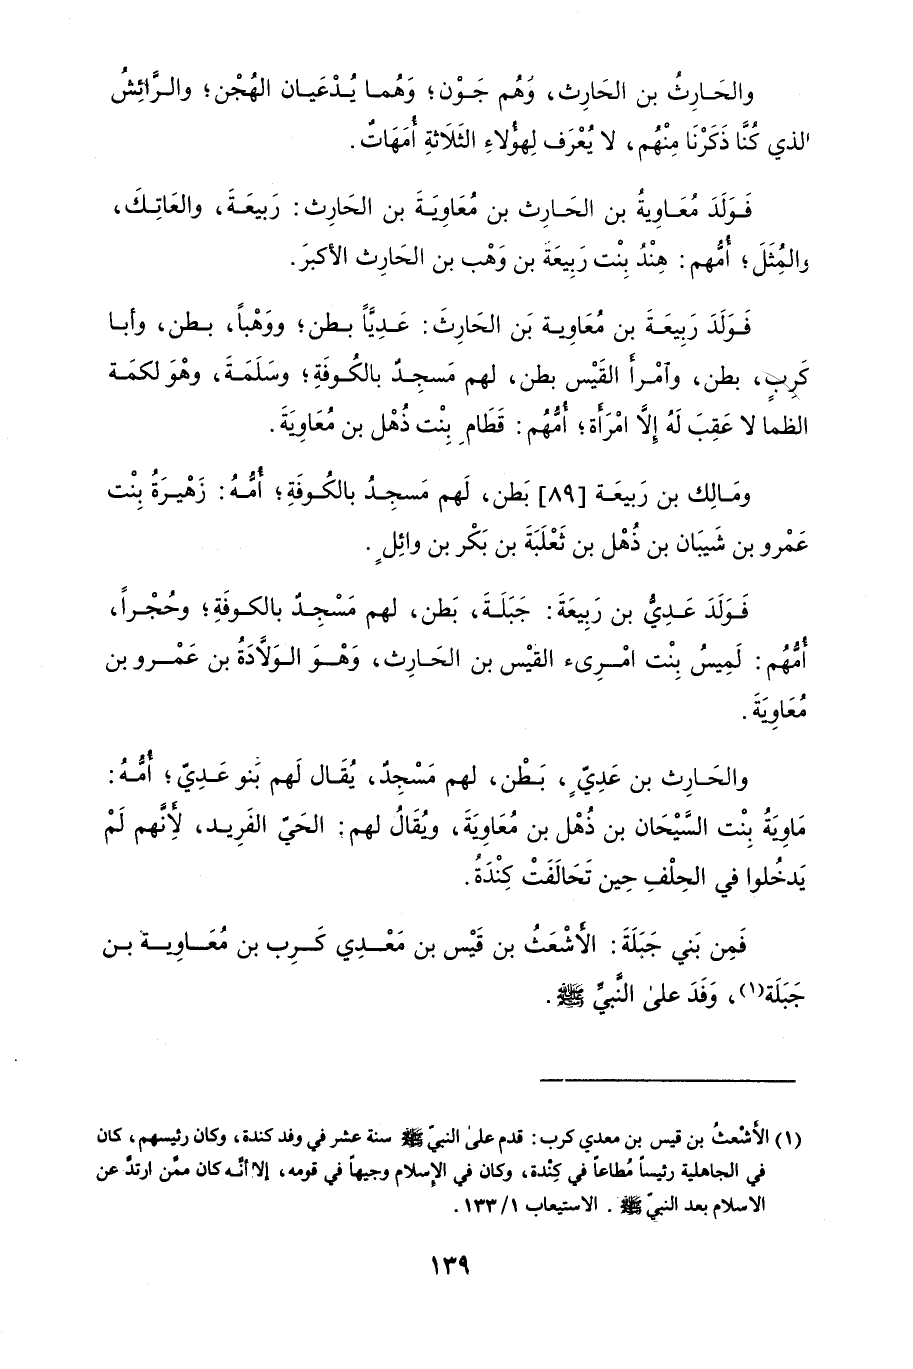 والحَارِثُ بن الحَارِث، وَهُم جَوْن؛ وَهُما يُدْعَيان الهُجْن؛ والرَّائِشُ
الذي كُنَّا ذَكَرْنَا مِنْهُم، لا يُعْرَف لِهؤُلاءِ الثَلَاثةِ أُمَهَاتٌ.
فَوَلَدَ مُعَاوِيةُ بن الحَارِث بن مُعَاوِيَةَ بن الحَارِث: رَبِيعَةَ، والعَاتِكَ،
والمُثَلَ؛ أُمُّهم: هِنْدُ بِنْت رَبِيعَةَ بن وَهْب بن الحَارِث الأكبَرَ.
فَوَلَدَ رَبِيعَةَ بن مُعَاوِية بَن الحَارِثَ: عَدِيَّاً بطن؛ ووَهْباً، بطن، وأبا
كَرِبٍ، بطن، وآمْرأَ القَيْس بطن، لهم مَسجِدٌ بالكُوفَةِ؛ وسَلَمَةَ، وهْوَ لكمَة
الظما لا عَقِبَ لَهُ إلَّا امْرَأة؛ أُمُّهُم: قَطَامِ بِنْت ذُهْل بن مُعَاوِيَةَ.
ومَالِك بن رَبِيعَة [٨٩] بَطن، لَهم مَسجِدُ بالكُوفَةِ؛ أُمُّهُ: زَهْيرَةُ بِنْت
عَمْرو بن شَيبَان بن ذُهْل بن ثَعْلبَةَ بن بَكْر بن وائِلٍ.
فَوَلَدَ عَدِيُّ بن رَبِيعَةَ: جَبَلَةَ، بَطن، لهم مَسْجِدٌ بالكوفَةِ؛ وحُجْراً،
أُمُّهُم: لَمِيسُ بِنْت امْرِىء القيْس بن الحَارِث، وَهْوَ الوَلَّادَةُ بن عَمْرو بن
مُعَاوِيَةَ.
والحَارِث بن عَدِيٍّ، بَطْن، لهم مَسْجِدٌ، يُقَال لَهم بَنو عَدِيّ؛ أُمُّهُ:
مَاوِيَةُ بِنْت السَّيْحَان بن ذُهْل بن مُعَاوِيَةَ، ويُقَالُ لهم: الحَيّ الفَرِيد، لأَنَّهم لَمْ
يَدخُلوا في الحِلْفِ حِين تَحَالَفَتْ كِنْدَةُ.
فَمِن بَني جَبَلَةَ: الأَشْعَثُ بن قَيْس بن مَعْدِي كَرِب بن مُعَاوِية بن
جَبَلَة(١)، وَفَدَ علىٰ النَّبيِّ ﷺ.
(١) الأَشْعثُ بن قيس بن معدي كرب: قدم علىٰ النبيّ ﷺ سنة عشر في وفد كندة، وكان رئيسهم، كان
في الجاهلية رئيساً مُطاعاً في كِنْدة، وكان في الإِسلام وجيهاً في قومه، إلا أنّه كان ممّن ارتدَّ عن
الاسلام بعد النبيّ ﷺ. الاستيعاب ١/ ١٣٣.
١٣٩